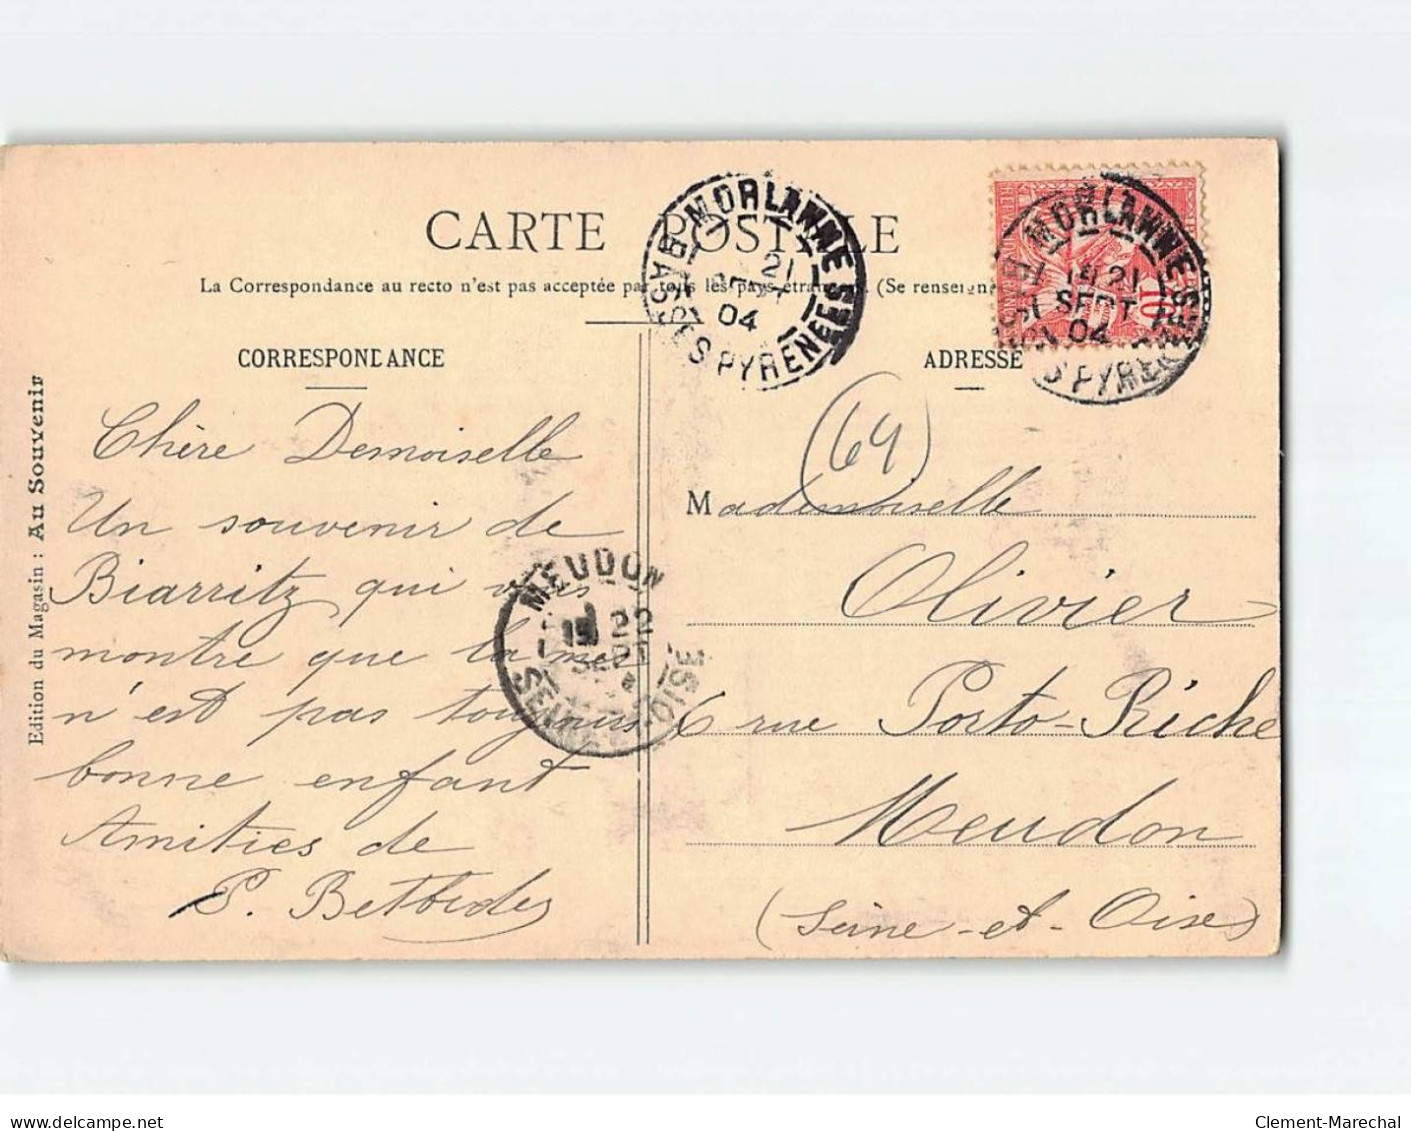 CARTE POSTALE
La Correspondance au recto n'est pas acceptée par tous les pays étrangers. (Se renseign
CORRESPONDANCE
ADRESSE
MORLANNE
21
SEPT
04
BASSES PYRÉNÉES
RÉPUB
10
MORLANNE
21
SEPT
04
BASSES PYRÉNÉES
(64)
Edition du Magasin : Au Souvenir
Chère Demoiselle
Un souvenir de
Biarritz qui vous
montre que la mer
n'est pas toujours
bonne enfant
Amitiés de
P. Betbeder
MEUDON
22
SEPT
SEINE-ET-OISE
Mademoiselle
Olivier
6 rue Porto-Riche
Meudon
(Seine-et-Oise)
www.delcampe.net
Clement-Marechal